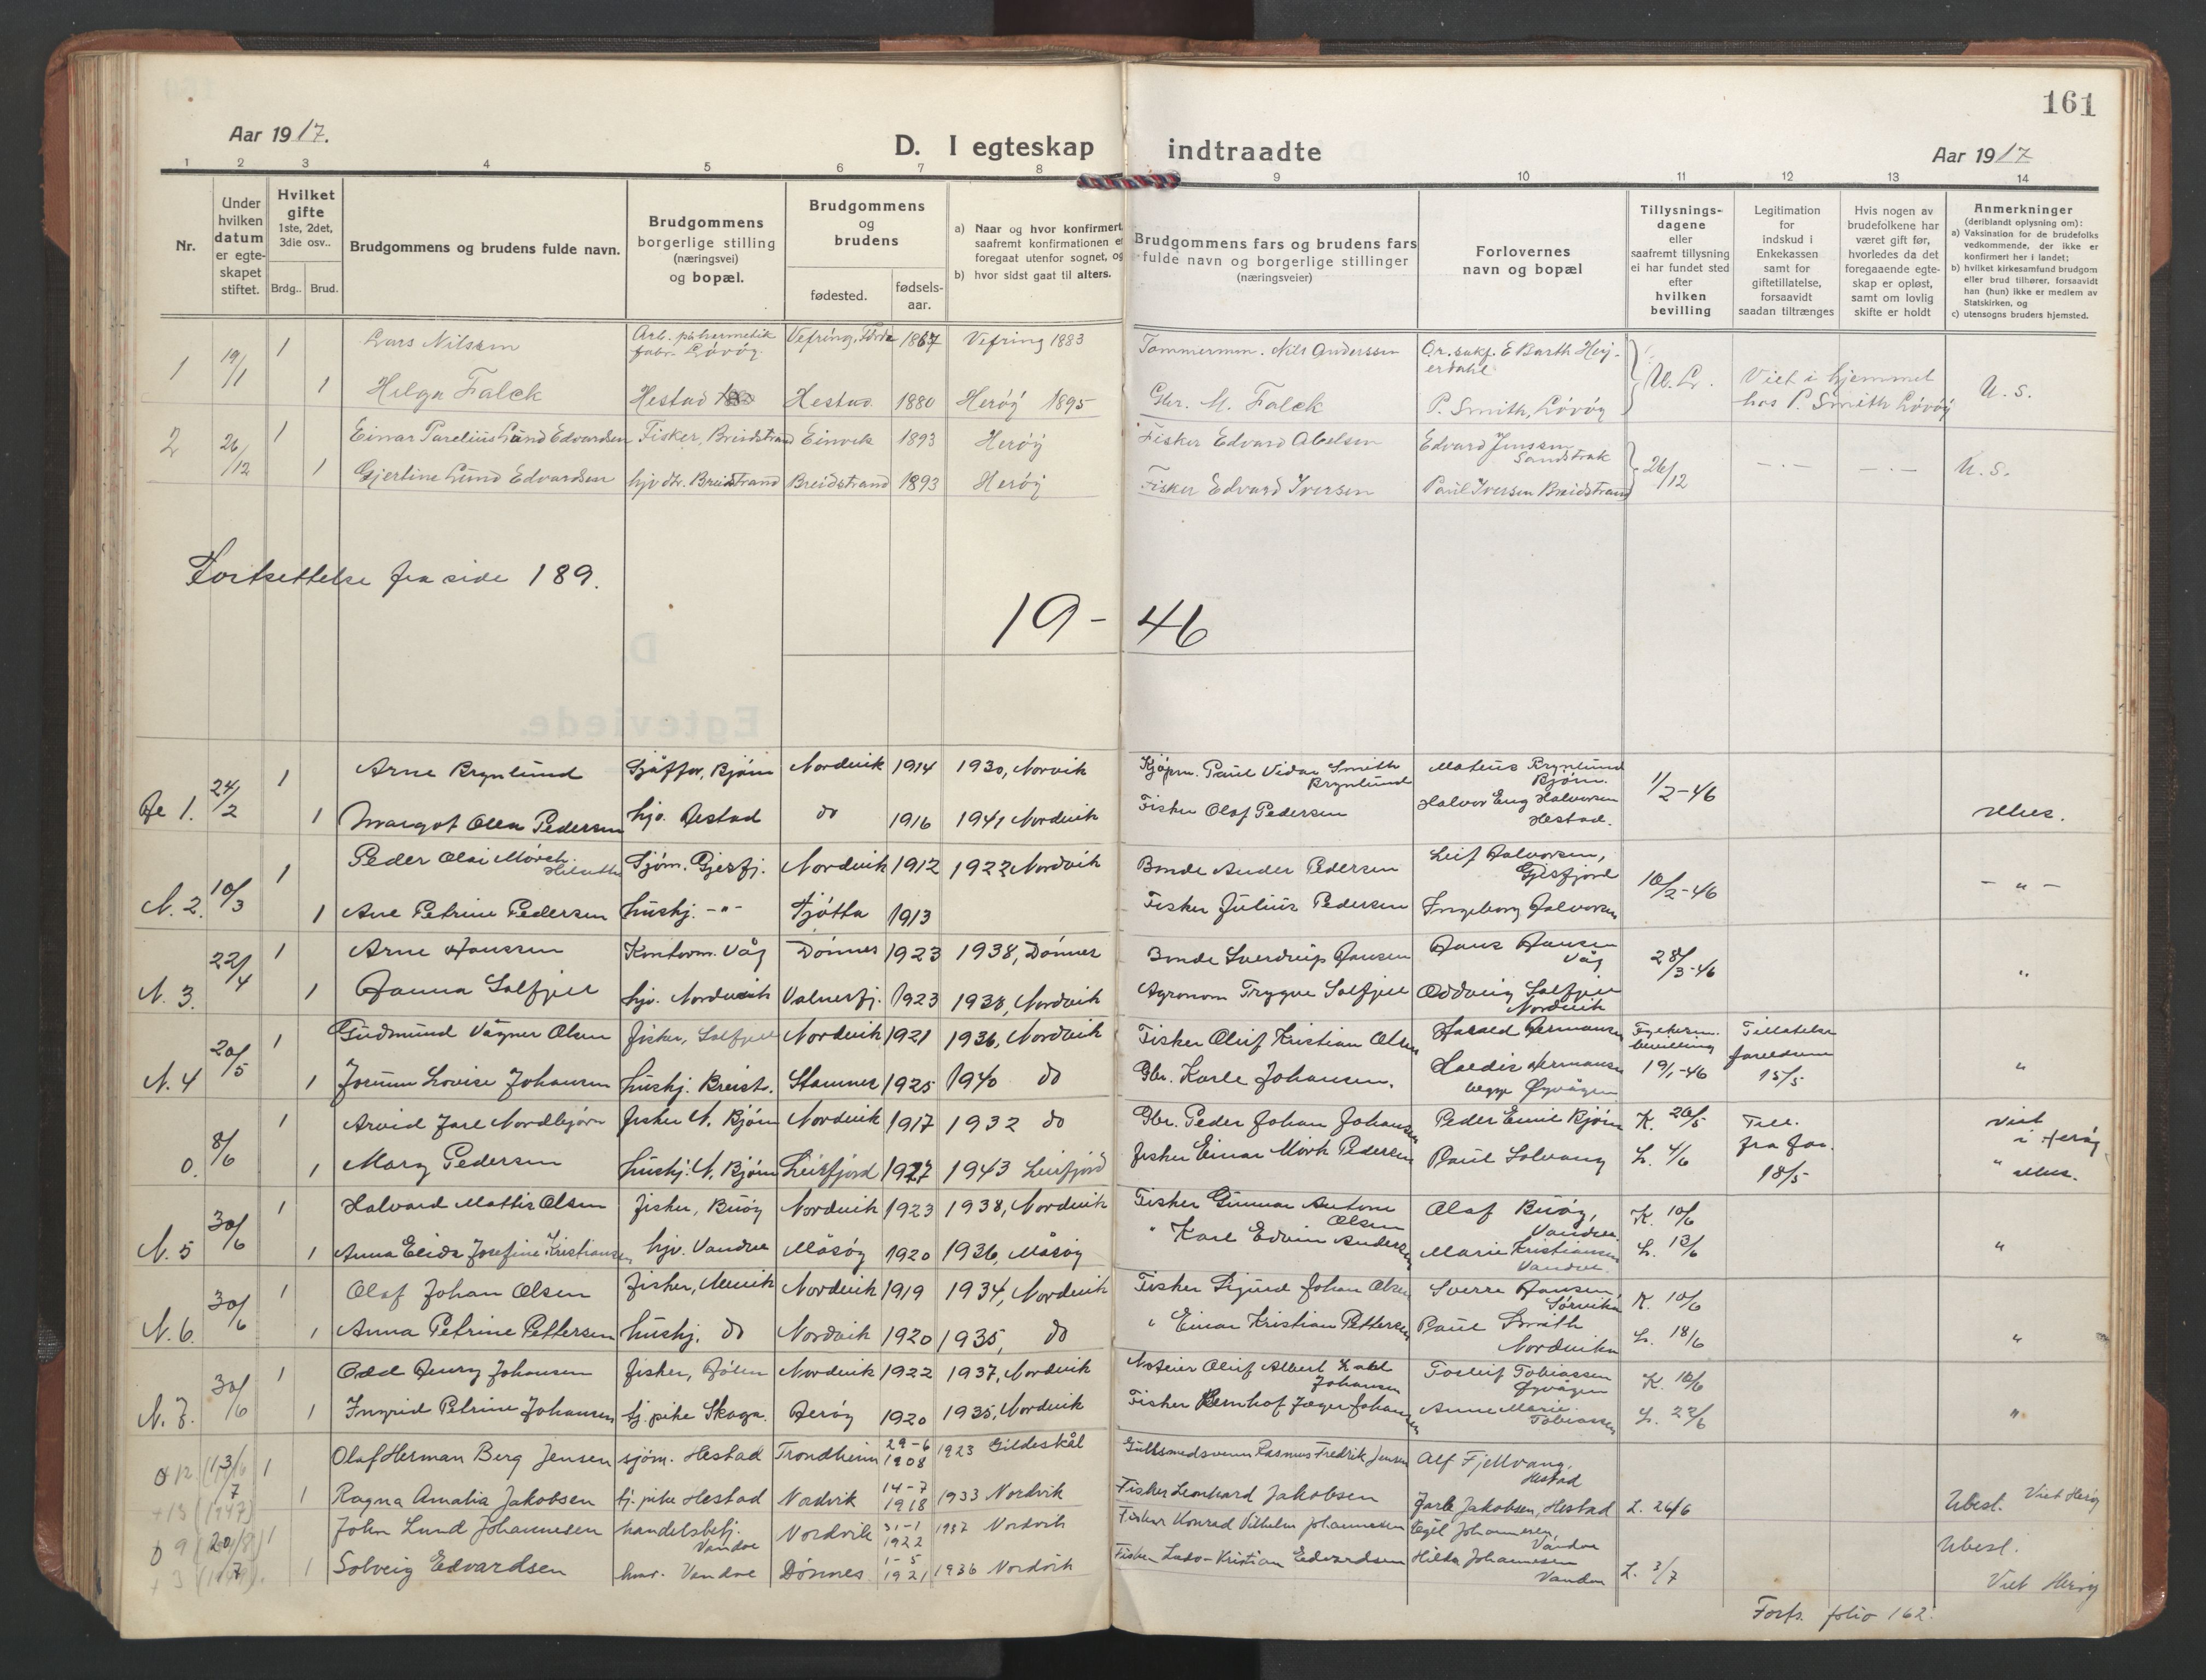 161
Aar 1917.
D. I egteskap indtraadte
Aar 1917
1 2 3 4 5 6 7 8 9 10 11 12 13 14
Nr.
Under hvilken datum er egteskapet stiftet.
Hvilket gifte 1ste, 2det, 3die osv..
Brdg.. Brud.
Brudgommens og brudens fulde navn.
Brudgommens borgerlige stilling (næringsvei) og bopæl.
Brudgommens og brudens
fødested.
fødsels-aar.
a) Naar og hvor konfirmert saafremt konfirmationen foregaat utenfor sognet, og
b) hvor sidst gaat til alters.
Brudgommens fars og brudens fars fulde navn og borgerlige stillinger (næringsveier)
Forlovernes navn og bopæl
Tillysnings-dagene eller saafremt tillysning ei har fundet sted efter hvilken bevilling
Legitimation for indskud i Enkekassen samt for giftetillatelse, forsaavidt saadan tiltrænges
Hvis nogen av brudefolkene har været gift før, hvorledes da det foregaaende egteskap er opløst, samt om lovlig skifte er holdt
Anmerkninger (deriblandt oplysning om):
a) Vaksination for de brudefolks vedkommende, der ikke er konfirmert her i landet;
b) hvilket kirkesamfund brudgom eller brud tilhører, forsaavidt han (hun) ikke er medlem av Statskirken, og
c) utensogns bruders hjemsted.
1 19/11 1 Lars Nilssen Arb. på hermetik fabr. Løvøy. Vefring, 1867 Vefring 1883 Tømmermn. Nils Anderssen O.r.sakf. E Barth Heyerdahl
1 Helga Falck Hestad Hestad 1880 Herøy 1895 Gbr. M. Falck P. Smith, Løvøy Viet i hjemmet hos P. Smith Løvøy U. s.
2 26/12 1 Einar Parelius Lund Edvardsen Fisker, Breidstrand Einvik 1893 Herøy Fisker Edvard Abelsen Edvard Jenssen Sandstrak
1 Gjertine Lund Edvardsen hjv. dtr. Breidstrand Breidstrand 1893 Herøy Fisker Edvard Iversen Paul Iversen Breidstrand 26/12 - . - - . - U. s.
Fortsettelse fra side 189.
19 - 46
1. 24/2 1 Arne Brynlund Bjørn Nordvik 1914 1930, Norvik Kjøpm. Paul Vidar Smith Brynlund Mateus Brynlund Bjørn. 1/2-46
1 Margot Olea Pedersen hjv. Hestad do 1916 1941 Nordvik Fisker Olaf Pedersen Halvor Eng Halvorsen Hestad.
N. 2. 10/3 1 Peder Olai Mørch Sjøm. Gjesfj. Nordvik 1912 1922 Nordvik Bonde Ander Pedersen Leif Halvorsen, Gjesfjord 10/2-46 - " -
1 Ane Petrine Pedersen hushj. -"- Tjøtta 1913 Fisker Julius Pedersen Ingeborg Halvorsen
N. 3. 22/4 1 Arne Hanssen Kontorm. Våg Dønnes 1923 1938, Dønnes Bonde Sverdrup Hansen Hans Hansen Våg 28/3-46 "
1 Hanna Solfjell hjv. Nordvik Valnesfj. 1923 1938, Nordvik Agronom Trygve Solfjell Oddveig Solfjell Nordvik
N. 4 20/5 1 Gudmund Vagner Olsen fisker, Solfjell Nordvik 1921 1936, Nordvik Fisker Oluf Kristian Olsen Harald Hermansen Fylkesm. bevilling 19/1-46 Tillatelse foreldrene 15/5
1 Jorunn Lovise Johansen hushj. Breist. Stamnes 1925 1940 do Gbr. Karle Johansen. Hardis Hermansen begge Øyvågen "
0. 8/6 1 Arvid Jarl Nordbjørn fisker N. Bjørn Nordvik 1917 1932 do Gbr. Peder Johan Johansen Peder Emil Bjørn K. 20/5 Till. fra far. 18/5 viet i Herøy
1 Mary Pedersen hushj. N. Bjørn Leirfjord 1927 1943 Leirfjord fisker Einar Mørk Pedersen Paul Solvang L. 4/6
N. 5 30/6 1 Halvard Mattis Olsen fisker, Buøy Nordvik 1923 1938, Nordvik Fisker Gunnar Antoni Olsen Olaf Buøy, Vandve K. 10/6
1 Anna Elida Josefine Kristiansen hjv. Vandve Måsøy 1920 1936, Måsøy " Karl Edvin Andersen Marie Kristiansen Vandve. L. 13/6 "
N. 6. 30/6 1 Olaf Johan Olsen fisker, Nordvik 1919 1934, Nordvik Fisker Sigurd Johan Olsen Sverre Hansen, Sørvika K. 10/6
1 Anna Petrine Pettersen hushj. do Nordvik 1920 1935, do " Einar Kristian Pettersen Paul Smith Nordvika L. 18/6 "
N. 7. 30/6 1 Odd Henry Johansen fisker, Nordvik 1922 1937, Nordvik Oluf Albert Johansen Torleif Tobiassen Øyvågen K. 10/6
1 Ingrid Petrine Johansen tj. pike Skaga. Herøy 1920 1935, Nordvik Fisker Bernhof Jæger Johansen Anne Marie Tobiassen L. 22/6 "
1 Olaf Herman Berg Jensen sjøm. Hestad Trondheim 29-6 1908 1923 Gildeskål Gullsmedsvenn Rasmus Fredrik Jensen Alf Fjellvang, Hestad
+13 (1947) 1 Ragna Amalia Jakobsen tj. pike Hestad Nordvik 14-7 1918 1933 Nordvik Fisker Leonhard Jakobsen Jarle Jakobsen, Hestad L. 26/6 Ubesl. Viet Herøy
1 John Lund Johannesen handelsbetj. Vandve Nordvik 31-1 1922 1937 Nordvik Fisker Konrad Vilhelm Johannesen Egil Johannesen, Vandve Ubesl.
1 Solveig Edvardsen Vandve Dønnes 1-5 1921 1936 Nordvik Fisker Kristian Edvardsen Hilda Johannesen Vandve L. 3/7 Viet Herøy
Forts. folio 162.